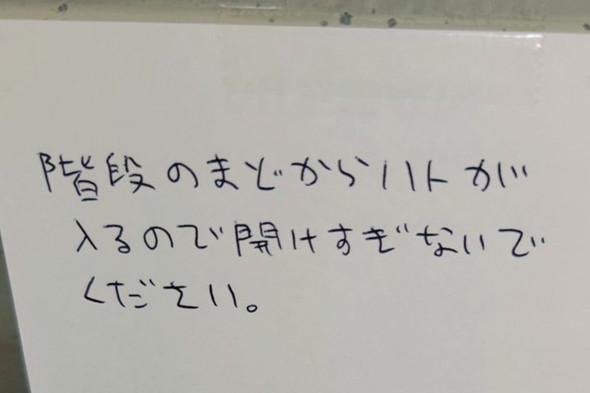 階段のまどからハトが
入るので開けすぎないで
ください。